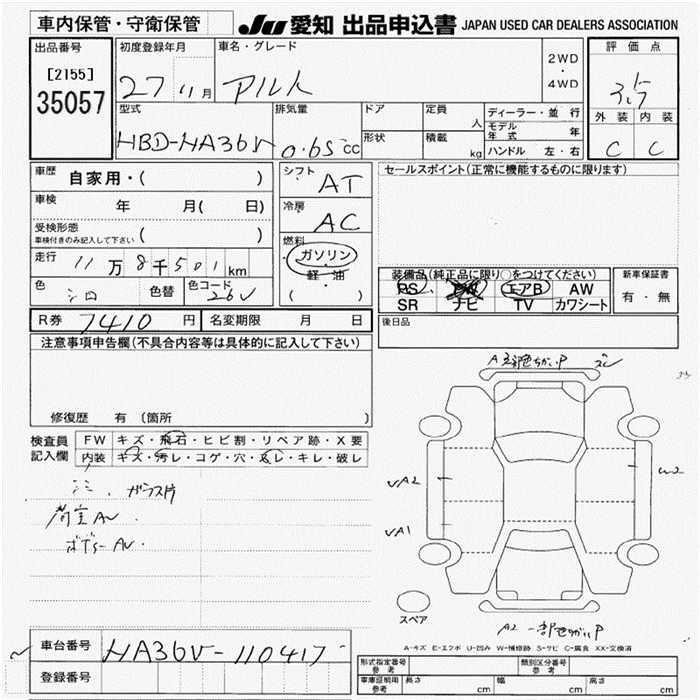 車内保管・守衛保管
JU 愛知 出品申込書 JAPAN USED CAR DEALERS ASSOCIATION
出品番号
[2155]
35057
初度登録年月
27 11月
車名・グレード
アルト
2WD
・
4WD
評価点
3.5
外装 内装
C C
型式
HBD-HA36V
排気量
0.65cc
ドア
形状
定員
人
積載
kg
ディーラー・並行
モデル年式 年
ハンドル 左・右
車歴
自家用・( )
車検
年 月( 日)
受検形態
車検付きのみ記入して下さい ( )
走行
11万8千501km
色
シロ
色替
色コード
26V
シフト
AT
冷房
AC
燃料
ガソリン
・
軽・油
( )
R券 7410円
名変期限 月 日
セールスポイント(正常に機能するものに限ります)
装備品(純正品に限り○をつけてください)
PS PW エアB AW
SR ナビ TV カワシート
新車保証書
有・無
後日品
注意事項申告欄(不具合内容等は具体的に記入して下さい)
修復歴 有(箇所 )
検査員
記入欄
FW キズ・飛石・ヒビ割・リペア跡・X要
内装 キズ・汚レ・コゲ・穴・スレ・キレ・破レ
ガラス片
荷室AU
ボデーAU.
A 一部色ちがいP
A2 一部色ちがいP
UA2
UA1
W2
スペア
A-キズ E-エクボ U-凹み W-補修跡 S-サビ C-腐食 XX-交換済
車台番号 HA36V-110417
登録番号
形式指定番号
参考
類別区分番号
参考
車庫証明用
参考
長さ cm
幅 cm
高さ cm